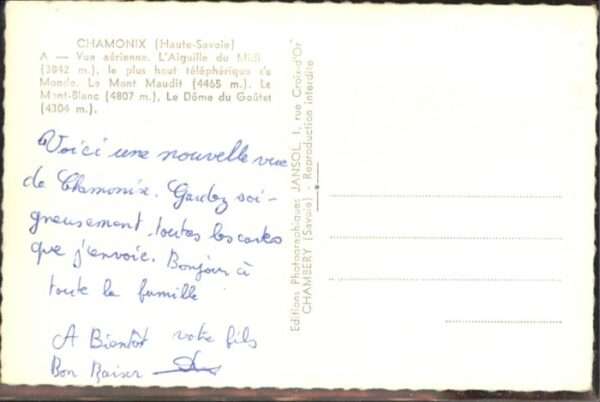 CHAMONIX (Haute-Savoie)
A — Vue aérienne. L'Aiguille du Midi
(3842 m.), le plus haut téléphérique du
Monde. Le Mont Maudit (4465 m.). Le
Mont-Blanc (4807 m.), Le Dôme du Goûter
(4304 m.).
Voici une nouvelle vue
de Chamonix. Gardez soi-
gneusement toutes les cartes
que j'envoie. Bonjour à
toute la famille
A Bientôt votre fils
Bon Baiser
Editions Photographiques JANSOL, 1, rue Croix-d'Or
CHAMBERY (Savoie) - Reproduction interdite